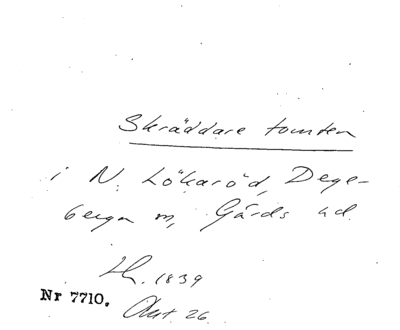 Skräddare tomten
i N. Lökaröd, Dege-
berga sn, Gärds hd.
Lk. 1839
Nr 7710. Akt 26